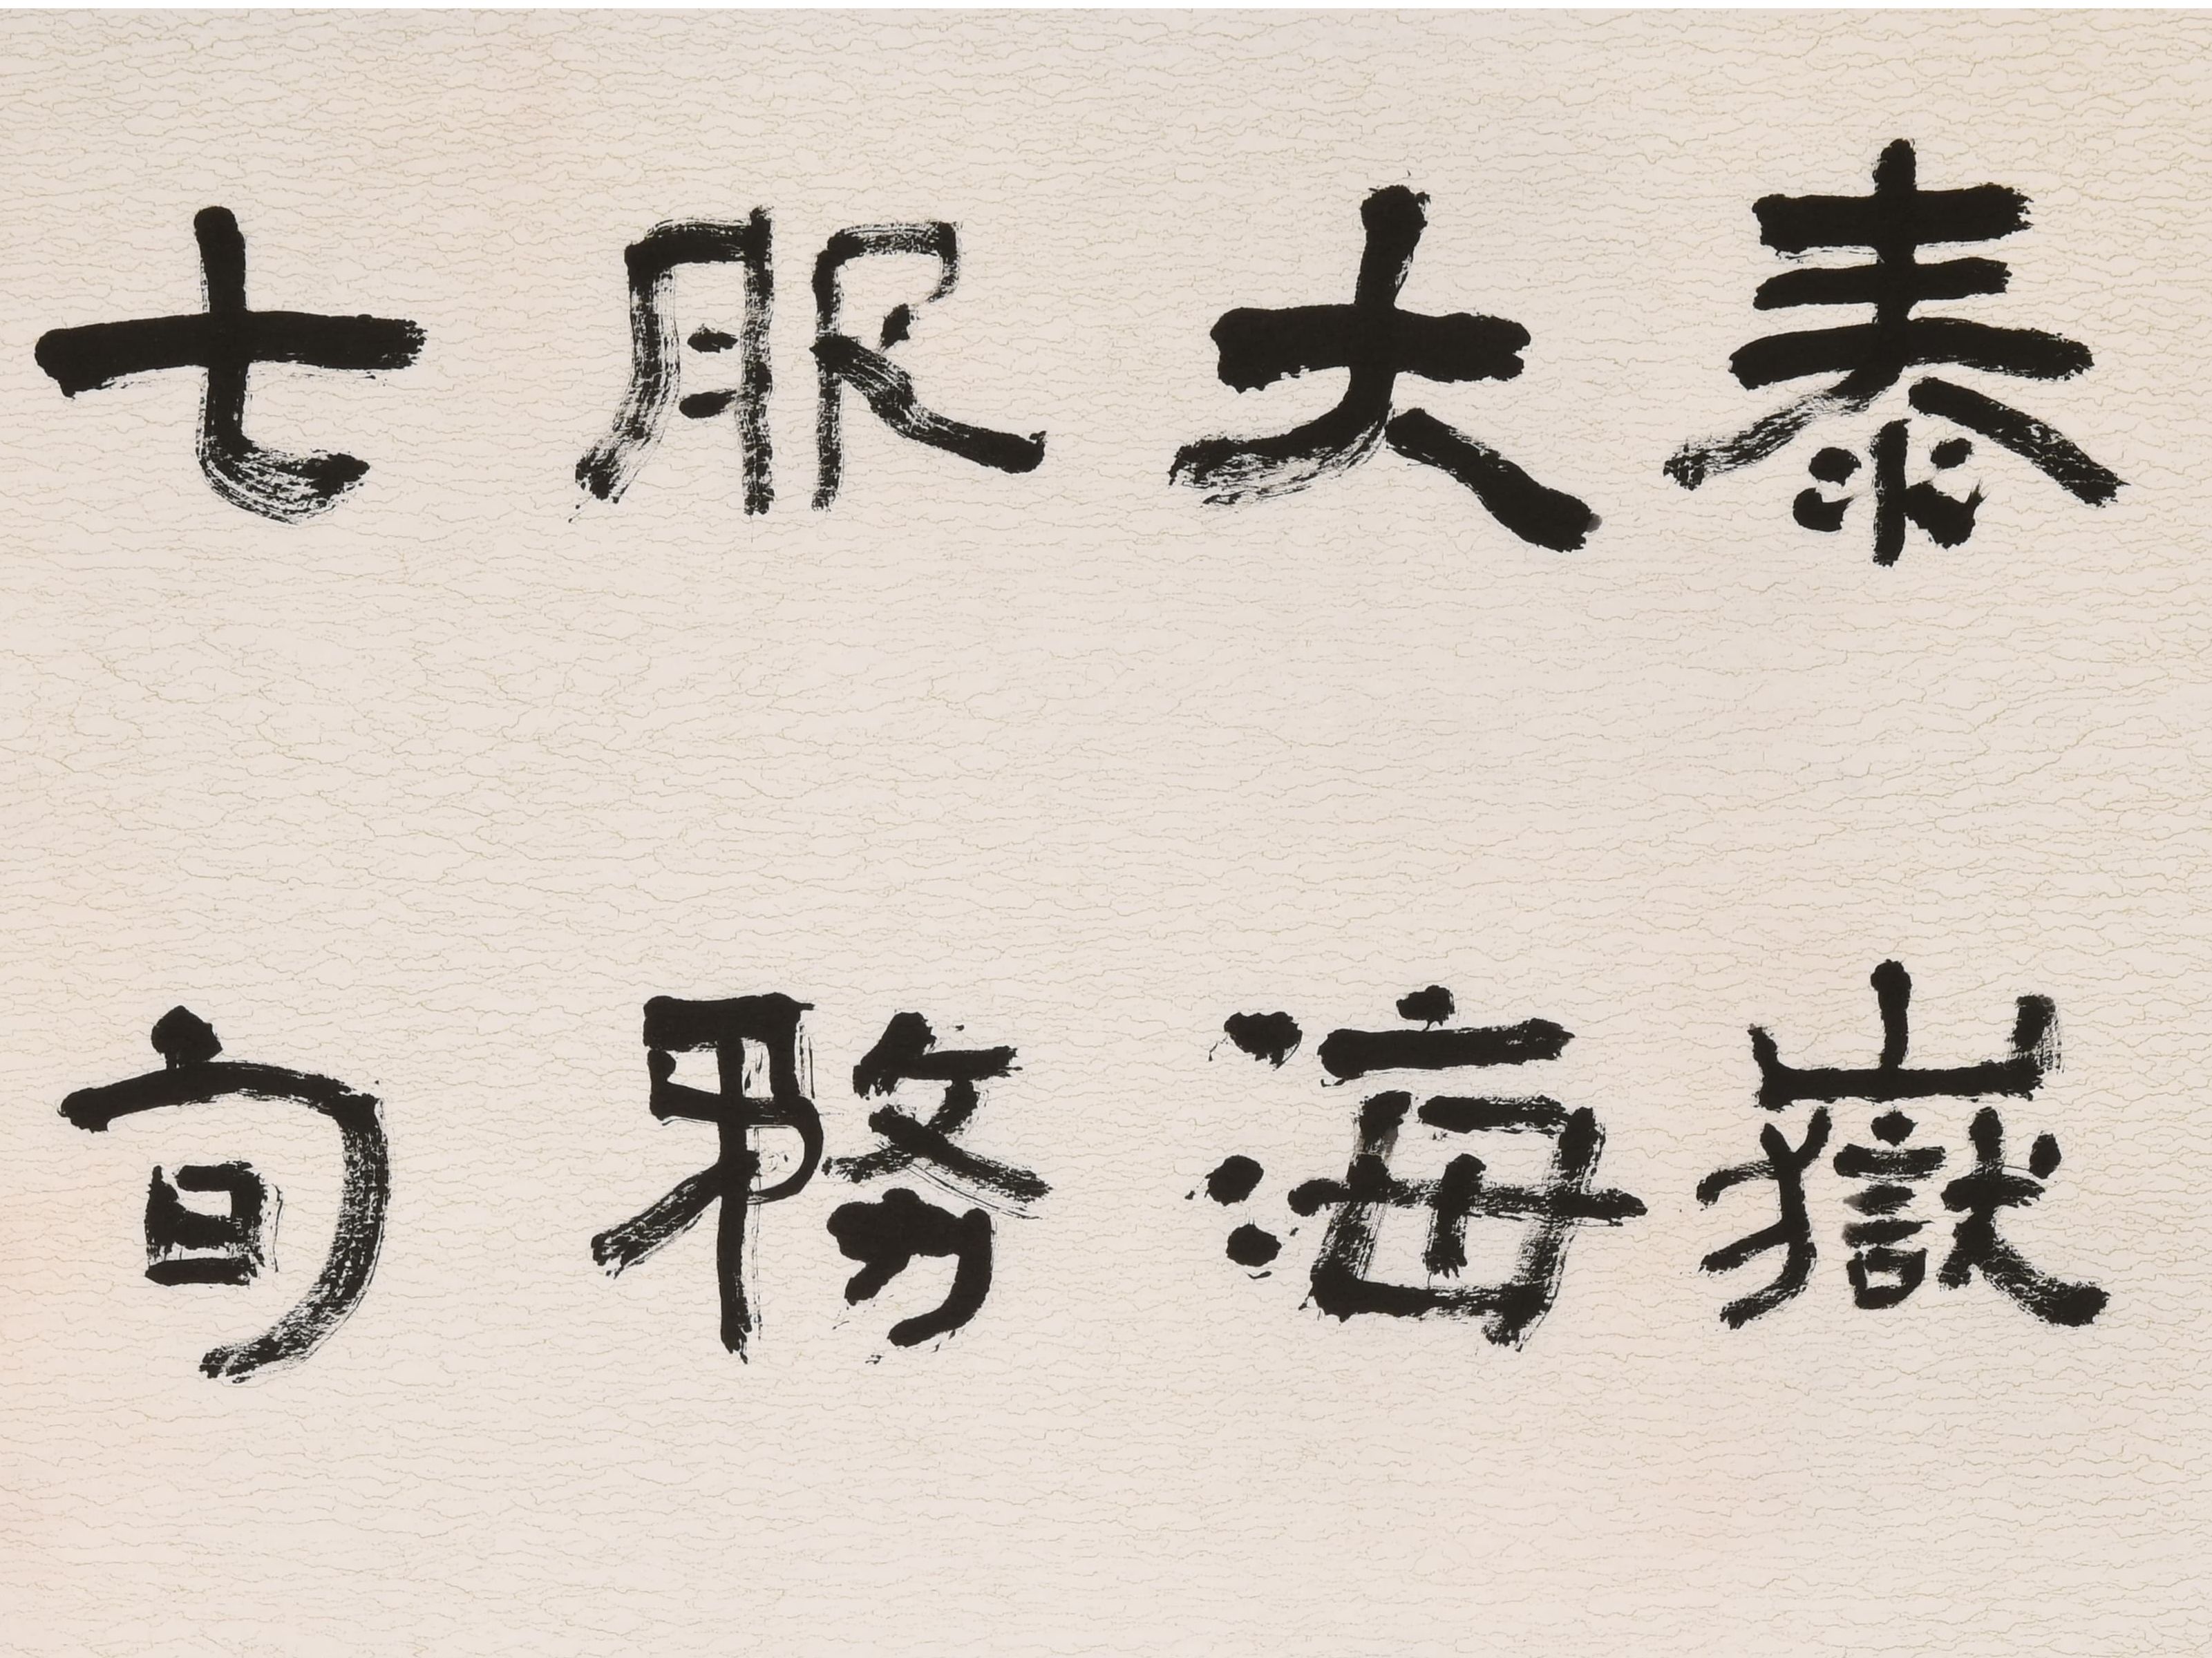 泰嶽
大海
服務
七旬